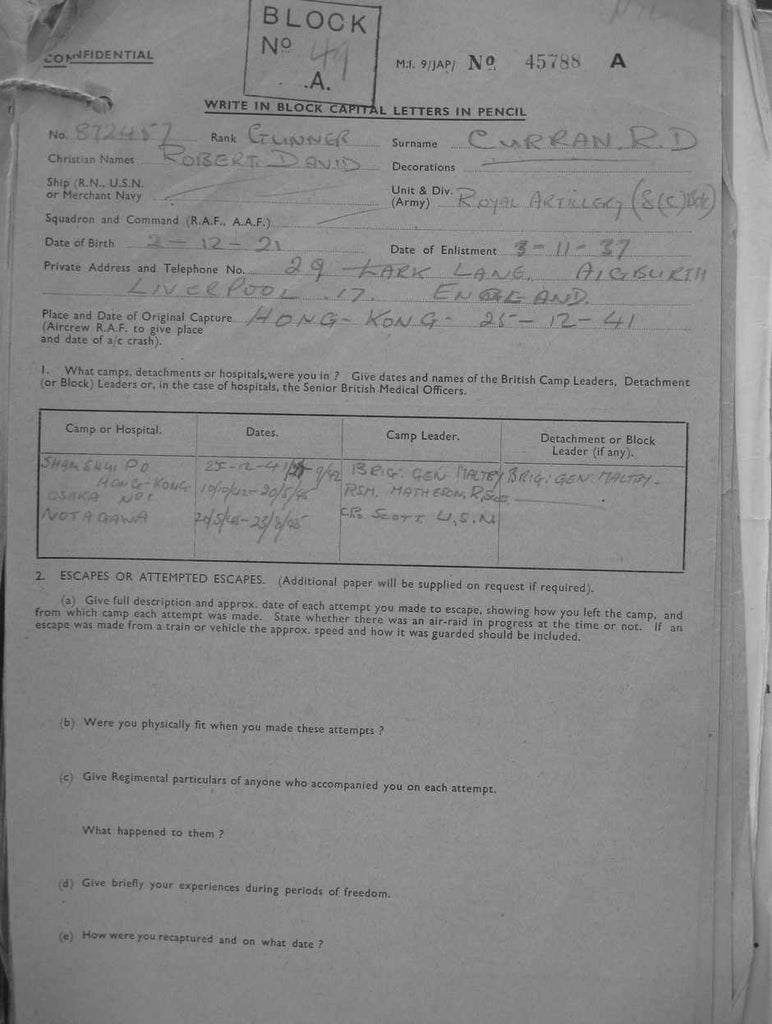 BLOCK
No 49
.A.
CONFIDENTIAL
M.I. 9/JAP/ No. 45788 A
WRITE IN BLOCK CAPITAL LETTERS IN PENCIL
No. 872457 Rank GUNNER Surname CURRAN. R.D
Christian Names ROBERT. DAVID Decorations
Ship (R.N., U.S.N. or Merchant Navy Unit & Div. (Army) ROYAL ARTILLERY (8(C)
Squadron and Command (R.A.F., A.A.F.)
Date of Birth 2-12-21 Date of Enlistment 3-11-37
Private Address and Telephone No. 29 LARK LANE. AIGBURTH
LIVERPOOL .17. ENGLAND.
Place and Date of Original Capture HONG-KONG- 25-12-41
(Aircrew R.A.F. to give place
and date of a/c crash).
1. What camps, detachments or hospitals, were you in ? Give dates and names of the British Camp Leaders, Detachment
(or Block) Leaders or, in the case of hospitals, the Senior British Medical Officers.
Camp or Hospital. Dates. Camp Leader. Detachment or Block
Leader (if any).
SHAMSHUI PO 25-12-41 9/42 BRIG. GEN MALTBY BRIG. GEN. MALTBY-
HONG-KONG
OSAKA No 1 10/10/42-20/5/45 RSM. MATHESON, R.Scots
NOTAGAWA 20/5/45-23/8/45 SCOTT U.S.N
2. ESCAPES OR ATTEMPTED ESCAPES. (Additional paper will be supplied on request if required).
(a) Give full description and approx. date of each attempt you made to escape, showing how you left the camp, and
from which camp each attempt was made. State whether there was an air-raid in progress at the time or not. If an
escape was made from a train or vehicle the approx. speed and how it was guarded should be included.
(b) Were you physically fit when you made these attempts ?
(c) Give Regimental particulars of anyone who accompanied you on each attempt.
What happened to them ?
(d) Give briefly your experiences during periods of freedom.
(e) How were you recaptured and on what date ?